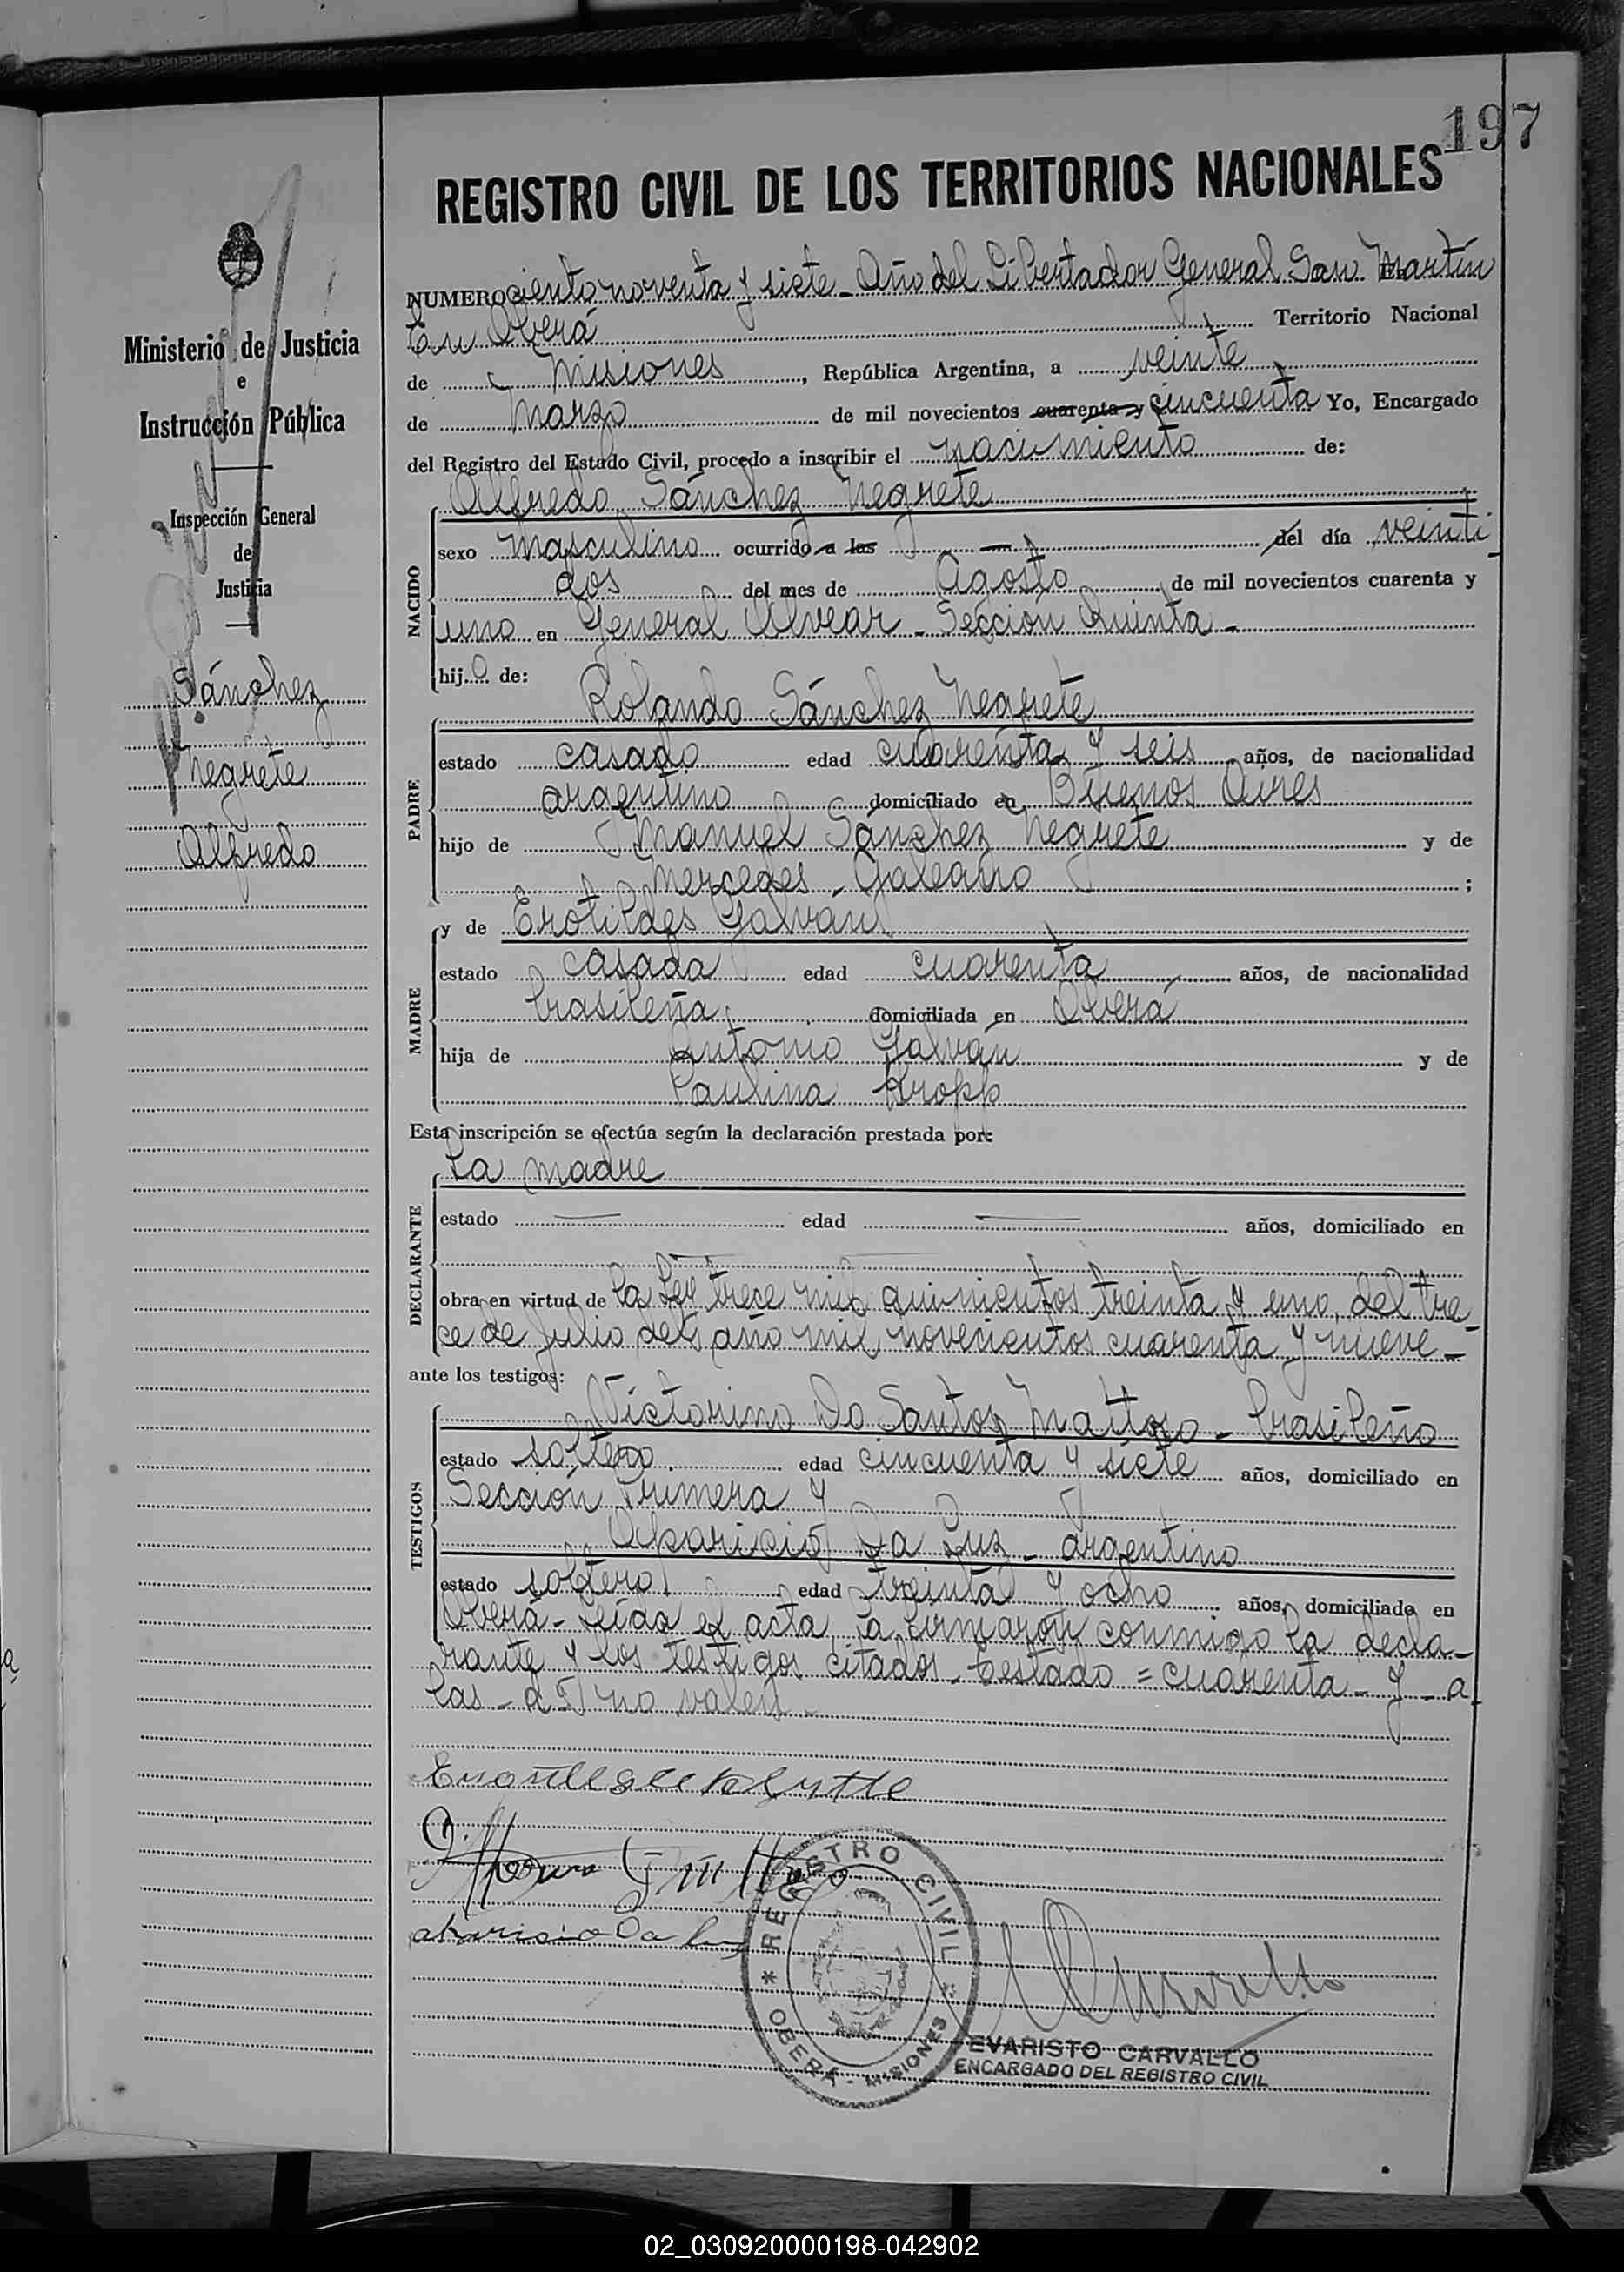 197
REGISTRO CIVIL DE LOS TERRITORIOS NACIONALES
Ministerio de Justicia
e
Instrucción Pública
Inspección General
de
Justicia
Sánchez
Negrete
Alfredo
NUMERO ciento noventa y siete - Año del Libertador General San Martín
En Oberá Territorio Nacional
de Misiones, República Argentina, a veinte
de Marzo de mil novecientos cuarenta y cincuenta Yo, Encargado
del Registro del Estado Civil, procedo a inscribir el nacimiento de:
Alfredo Sánchez Negrete
NACIDO
sexo masculino ocurrido a las — del día veinti
dos del mes de Agosto de mil novecientos cuarenta y
uno en General Alvear - Sección Quinta -
hijo de:
Rolando Sánchez Negrete
PADRE
estado casado edad cuarenta y seis años, de nacionalidad
argentino domiciliado en Buenos Aires
hijo de Manuel Sánchez Negrete y de
Mercedes Galeano ;
y de Erotildes Galván
MADRE
estado casada edad cuarenta años, de nacionalidad
brasileña domiciliada en Oberá
hija de Antonio Galván y de
Paulina Kropp
Esta inscripción se efectúa según la declaración prestada por:
La madre
DECLARANTE
estado — edad — años, domiciliado en
obra en virtud de la Ley trece mil quinientos treinta y uno, del tre-
ce de Julio del año mil novecientos cuarenta y nueve -
ante los testigos:
TESTIGOS
Victorino Do Santos Mattozo - brasileño
estado soltero edad cincuenta y siete años, domiciliado en
Sección Primera y
Aparicio Da Luz - argentino
estado soltero edad treinta y ocho años, domiciliado en
Oberá - Leída el acta, la firmaron conmigo la decla-
rante y los testigos citados - testado = cuarenta - y - a
las - d - no valen -
aparicio Da Luz
REGISTRO CIVIL
OBERÁ - MISIONES
EVARISTO CARVALLO
ENCARGADO DEL REGISTRO CIVIL
02_030920000198-042902